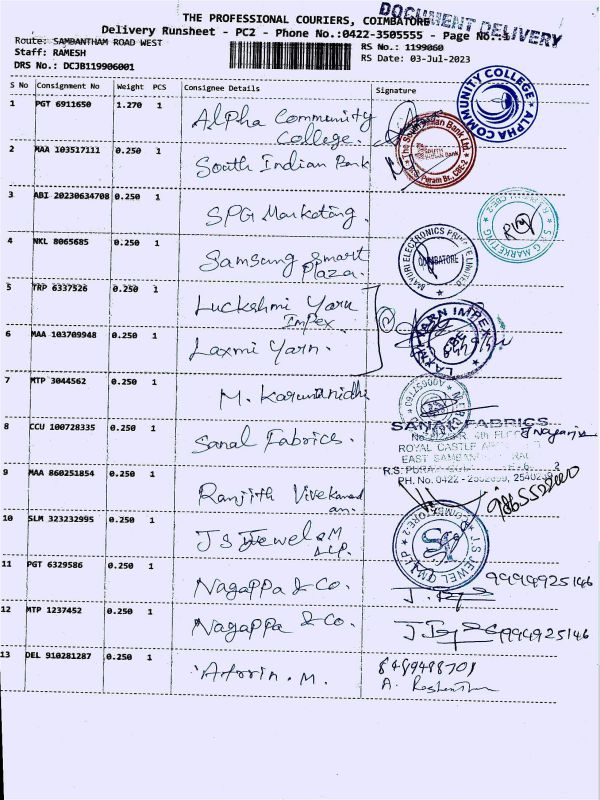 THE PROFESSIONAL COURIERS, COIMBATORE
DOCUMENT DELIVERY
Delivery Runsheet - PC2 - Phone No.:0422-3505555 - Page No.:1
Route: SAMBANTHAM ROAD WEST
RS No.: 1199060
Staff: RAMESH
RS Date: 03-Jul-2023
DRS No.: DCJB119906001
S No Consignment No Weight PCS Consignee Details Signature
1 PGT 6911650 1.270 1 Alpha Community
College.
ALPHA COMMUNITY COLLEGE
2 MAA 103517111 0.250 1 South Indian Bank
The South Indian Bank Ltd.
SOUTH INDIAN BANK
3 ABI 20230634708 0.250 1 SPG Marketing.
MARKETING
4 NKL 8065685 0.250 1 Samsung smart
plaza.
MAYURI ELECTRONICS PRIVATE LIMITED
COIMBATORE
5 TRP 6337526 0.250 1 Luckshmi Yarn
Impex.
6 MAA 103709948 0.250 1 Laxmi Yarn.
LAXMI YARN IMPEX
7 MTP 3044562 1 M. Karunanidhi
8 CCU 100728335 0.250 1 Sanal Fabrics.
SANAK FABRICS
ROYAL CASTLE
EAST
PH. No. 0422 -
9 MAA 860251854 0.250 1 Ranjith Vivekanand
an.
10 SLM 323232995 0.250 1 JS Jewel
J.S JEWEL
11 PGT 6329586 0.250 1 Nagappa & Co.
9994925146
12 MTP 1237452 0.250 1 Nagappa & Co.
9994925146
13 DEL 910281287 0.250 1
8489488701
A.